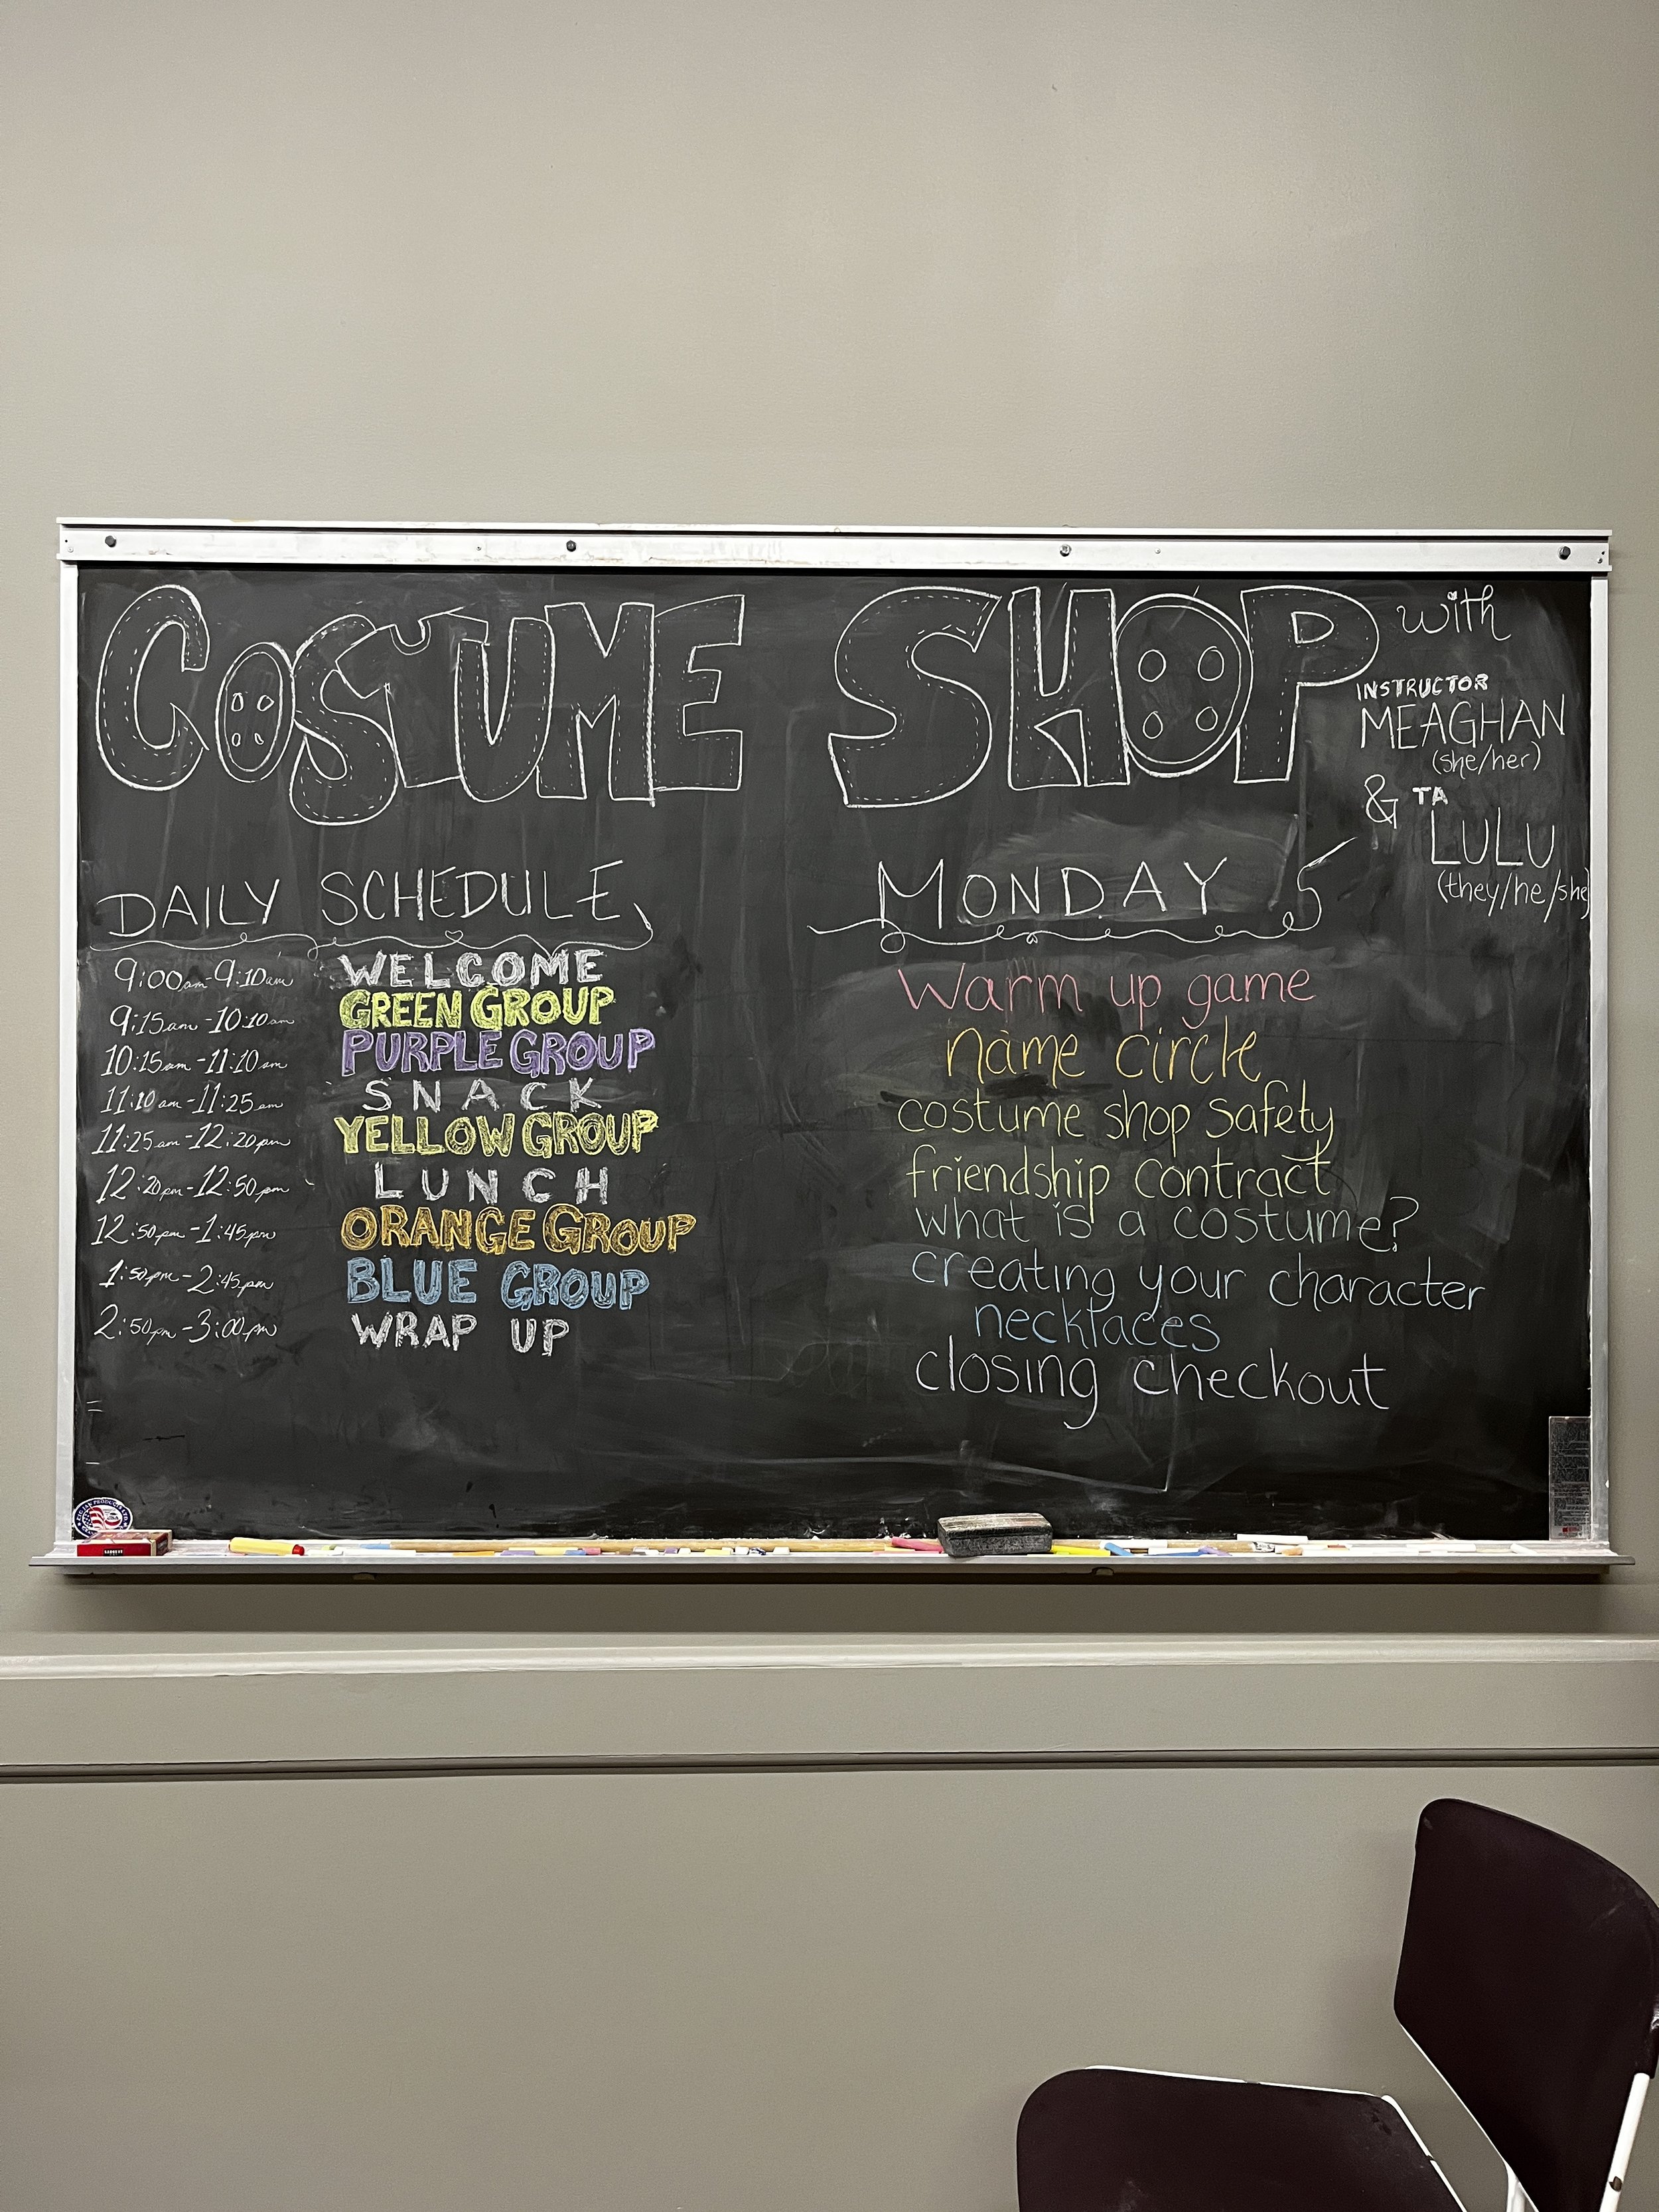 COSTUME SHOP with
INSTRUCTOR
MEAGHAN
(she/her)
& TA
LULU
(they/he/she)
DAILY SCHEDULE
9:00am-9:10am WELCOME
9:15am-10:10am GREEN GROUP
10:15am-11:10am PURPLE GROUP
11:10am-11:25am SNACK
11:25am-12:20pm YELLOW GROUP
12:20pm-12:50pm LUNCH
12:50pm-1:45pm ORANGE GROUP
1:50pm-2:45pm BLUE GROUP
2:50pm-3:00pm WRAP UP
MONDAY
Warm up game
name circle
costume shop safety
friendship contract
what is a costume?
creating your character
necklaces
closing checkout